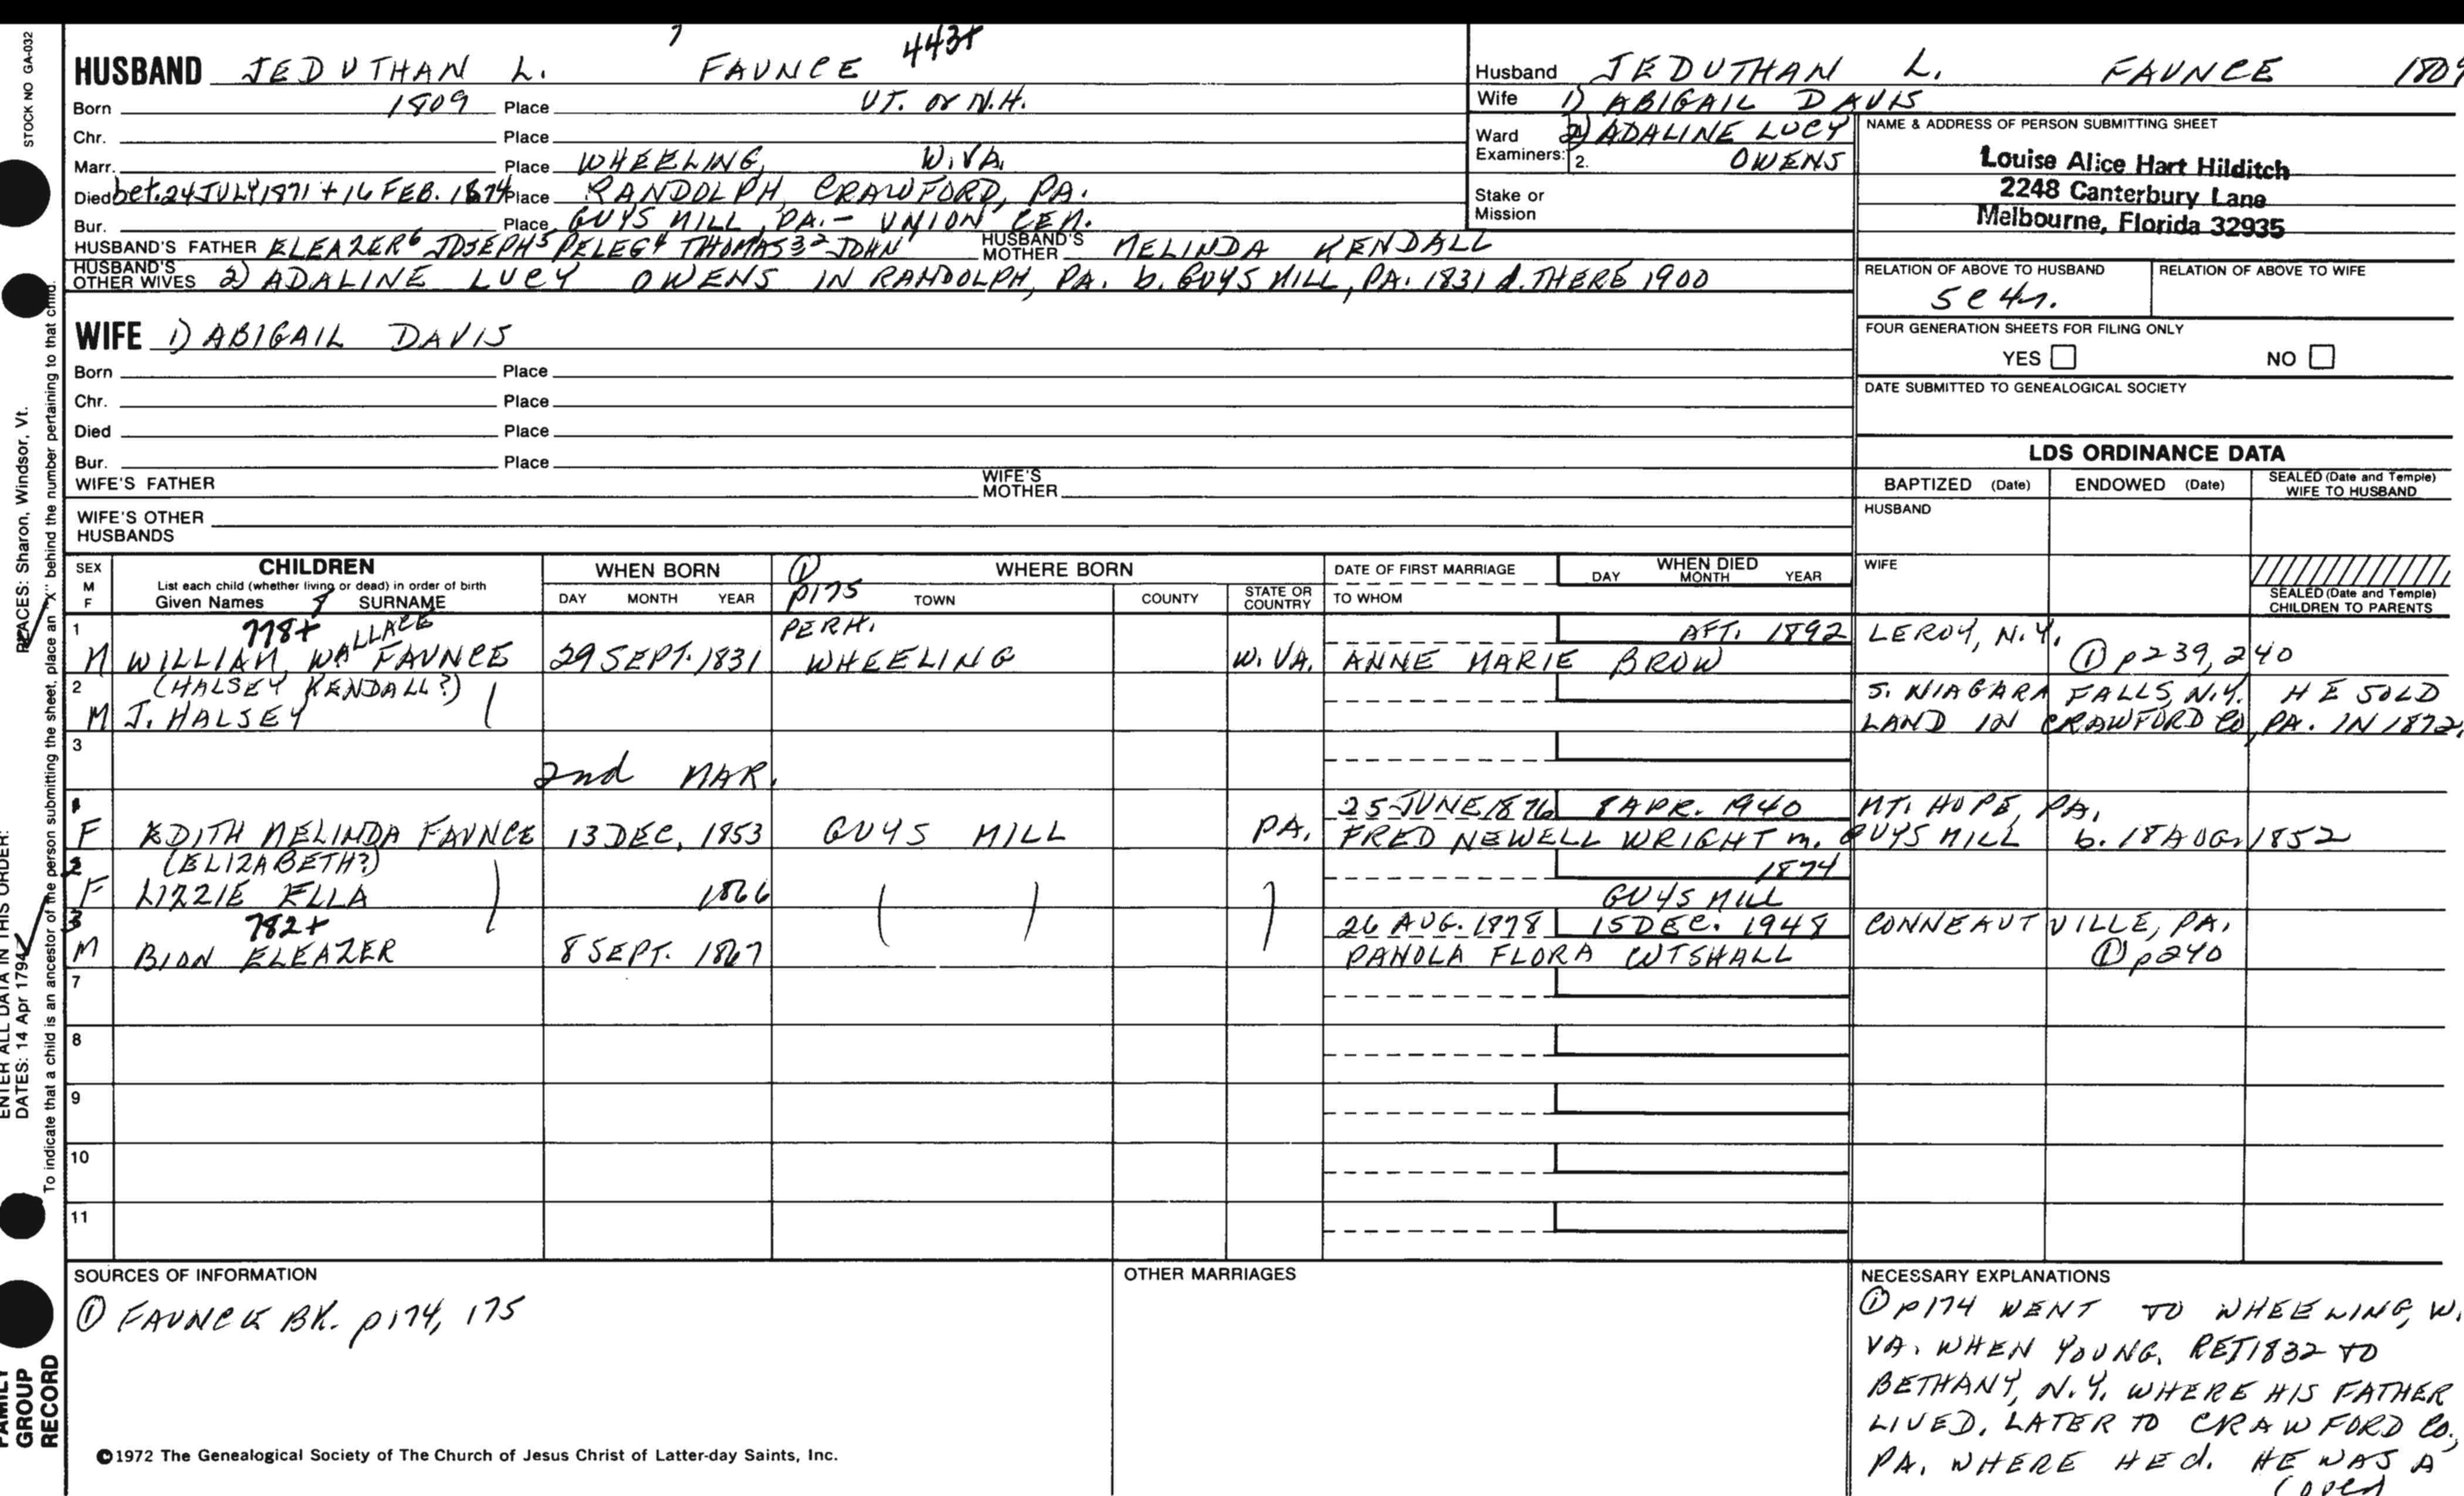 STOCK NO GA-032
7
443+
HUSBAND JEDUTHAN L. FAUNCE
Born 1809 Place VT. or N.H.
Chr. Place
Marr. Place WHEELING, W.VA.
Died bet. 24 JULY 1871 + 16 FEB. 1874 Place RANDOLPH, CRAWFORD, PA.
Bur. Place GUYS MILL, PA. - UNION CEM.
HUSBAND'S FATHER ELEAZER 6 JOSEPH 5 PELEG 4 THOMAS 3 2 JOHN 1 HUSBAND'S MOTHER MELINDA KENDALL
HUSBAND'S OTHER WIVES 2) ADALINE LUCY OWENS IN RANDOLPH, PA. b. GUYS MILL, PA. 1831 d. THERE 1900
WIFE 1) ABIGAIL DAVIS
Born Place
Chr. Place
Died Place
Bur. Place
WIFE'S FATHER WIFE'S MOTHER
WIFE'S OTHER HUSBANDS
Husband JEDUTHAN L. FAUNCE 1809
Wife 1) ABIGAIL DAVIS
Ward 2) ADALINE LUCY
Examiners: 2. OWENS
Stake or Mission
NAME & ADDRESS OF PERSON SUBMITTING SHEET
Louise Alice Hart Hilditch
2248 Canterbury Lane
Melbourne, Florida 32935
RELATION OF ABOVE TO HUSBAND RELATION OF ABOVE TO WIFE
FOUR GENERATION SHEETS FOR FILING ONLY
YES NO
DATE SUBMITTED TO GENEALOGICAL SOCIETY
LDS ORDINANCE DATA
BAPTIZED (Date) ENDOWED (Date) SEALED (Date and Temple) WIFE TO HUSBAND
HUSBAND
WIFE
SEALED (Date and Temple) CHILDREN TO PARENTS
SEX M F CHILDREN WHEN BORN WHERE BORN DATE OF FIRST MARRIAGE WHEN DIED
List each child (whether living or dead) in order of birth
Given Names SURNAME DAY MONTH YEAR TOWN COUNTY STATE OR COUNTRY TO WHOM DAY MONTH YEAR
① p175
1 778+ WALLACE PERH. AFT. 1892 LEROY, N.Y.
M WILLIAM WA FAUNCE 29 SEPT. 1831 WHEELING W. VA. ANNE MARIE BROW ① p239, 240
2 (HALSEY KENDALL?) S. NIAGARA FALLS, N.Y. HE SOLD
M J. HALSEY LAND IN CRAWFORD CO, PA. IN 1872.
3
2nd MAR.
1 25 JUNE 1876 8 APR. 1940 MT. HOPE, PA.
F EDITH MELINDA FAUNCE 13 DEC. 1853 GUYS MILL PA. FRED NEWELL WRIGHT m. GUYS MILL b. 18 AUG. 1852
2 (ELIZABETH?) 1874
F LIZZIE ELLA 1866 GUYS MILL
3 782+ 26 AUG. 1898 15 DEC. 1948 CONNEAUTVILLE, PA.
M BION ELEAZER 8 SEPT. 1867 PANOLA FLORA CUTSHALL ① p240
7
8
9
10
11
SOURCES OF INFORMATION
① FAUNCE BK. p174, 175
OTHER MARRIAGES
NECESSARY EXPLANATIONS
① p174 WENT TO WHEELING, W.
VA. WHEN YOUNG. RET 1832 TO
BETHANY, N.Y. WHERE HIS FATHER
LIVED. LATER TO CRAWFORD CO.,
PA. WHERE HE d. HE WAS A
(over
©1972 The Genealogical Society of The Church of Jesus Christ of Latter-day Saints, Inc.
PLACES: Sharon, Windsor, Vt.
ENTER ALL DATA IN THIS ORDER:
DATES: 14 Apr 1794
To indicate that a child is an ancestor of the person submitting the sheet, place an "X" behind the number pertaining to that child.
FAMILY GROUP RECORD